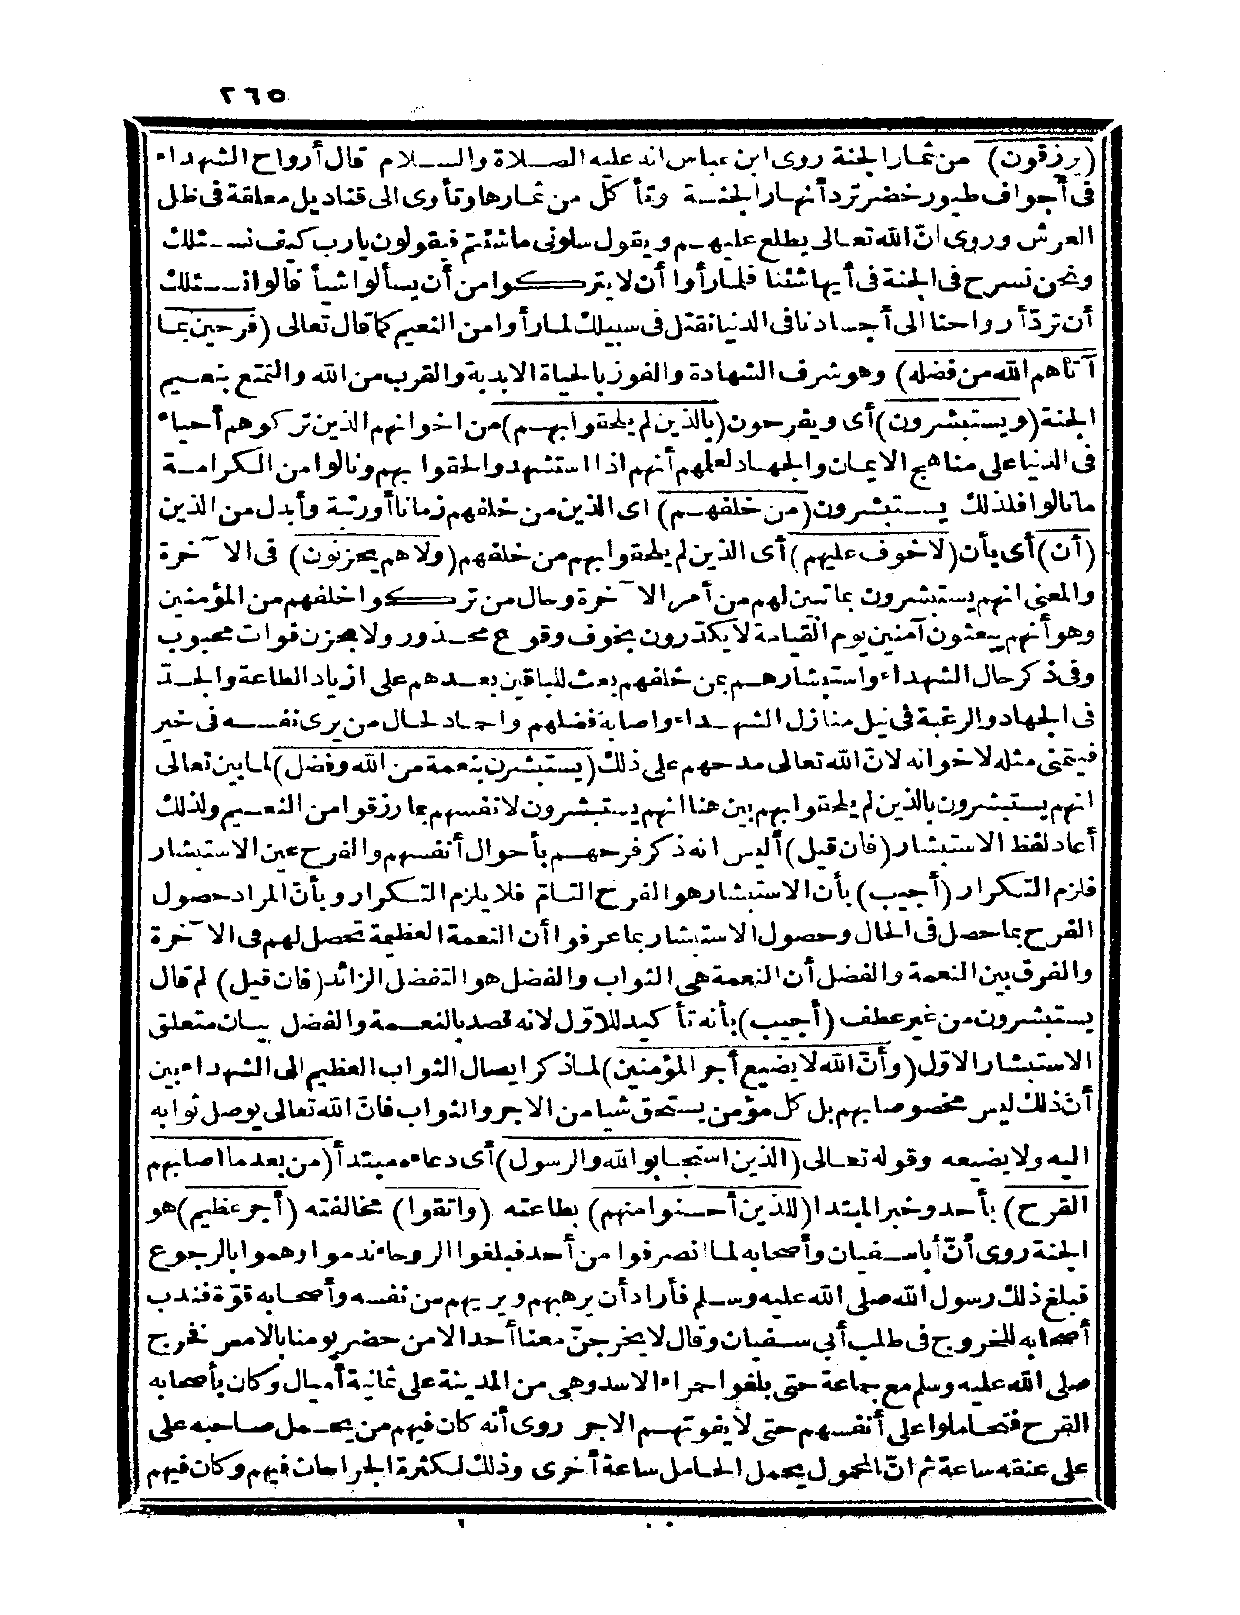 ٢٦٥
(يرزقون) من ثمار الجنة روى ابن عباس انه عليه الصلاة والسلام قال أرواح الشهداء
فى أجواف طيور خضر ترد أنهار الجنة وتأكل من ثمارها وتأوى الى قناديل معلقة فى ظل
العرش وروى انّ الله تعالى يطلع عليهم ويقول سلونى ما شئتم فيقولون يارب كيف نسئلك
ونحن نسرح فى الجنة فى أيها شئنا فلما رأوا أن لا يتركوا من أن يسألوا شيأ قالوا نسئلك
أن تردّ أرواحنا الى أجسادنا فى الدنيا نقتل فى سبيلك لما رأوا من النعيم كما قال تعالى (فرحين بما
آتاهم الله من فضله) وهو شرف الشهادة والفوز بالحياة الابدية والقرب من الله والتمتع بنعيم
الجنة (ويستبشرون) أى ويفرحون (بالذين لم يلحقوا بهم) من اخوانهم الذين تركوهم أحياء
فى الدنيا على مناهج الايمان والجهاد لعلمهم أنهم اذا استشهدوا لحقوا بهم ونالوا من الكرامة
ما نالوا فلذلك يستبشرون (من خلفهم) اى الذين من خلفهم زمانا أو رتبة وأبدل من الذين
(أن) أى بأن (لا خوف عليهم) أى الذين لم يلحقوا بهم من خلفهم (ولا هم يحزنون) فى الآخرة
والمعنى انهم يستبشرون بما تبين لهم من أمر الآخرة وحال من تركوا خلفهم من المؤمنين
وهو أنهم يبعثون آمنين يوم القيامة لا يكدّرون بخوف وقوع محذور ولا بحزن فوات محبوب
وفى ذكر حال الشهداء واستبشارهم بمن خلفهم بعث للباقين بعدهم على ازياد الطاعة والجدّ
فى الجهاد والرغبة فى نيل منازل الشهداء واصابة فضلهم واحماد لحال من يرى نفسه فى خير
فيتمنى مثله لاخوانه لانّ الله تعالى مدحهم على ذلك (يستبشرن بنعمة من الله وفضل) لما بين تعالى
انهم يستبشرون بالذين لم يلحقوا بهم بين هنا انهم يستبشرون لانفسهم بما رزقوا من النعيم ولذلك
أعاد لفظ الاستبشار (فان قيل) أليس انه ذكر فرحهم بأحوال أنفسهم والفرح عين الاستبشار
فلزم التكرار (أجيب) بأن الاستبشار هو الفرح التامّ فلا يلزم التكرار وبأنّ المراد حصول
الفرح بما حصل فى الحال وحصول الاستبشار بما عرفوا أن النعمة العظيمة تحصل لهم فى الآخرة
والفرق بين النعمة والفضل أن النعمة هى الثواب والفضل هو التفضل الزائد (فان قيل) لم قال
يستبشرون من غير عطف (أجيب) بأنه تأكيد للاوّل لانه قصد بالنعمة والفضل بيان متعلق
الاستبشار الاوّل (وأنّ الله لا يضيع أجر المؤمنين) لما ذكر ايصال الثواب العظيم الى الشهداء بين
أنّ ذلك ليس مخصوصا بهم بل كل مؤمن يستحق شيأ من الاجر والثواب فانّ الله تعالى يوصل ثوابه
اليه ولا يضيعه وقوله تعالى (الذين استجابوا لله والرسول) أى دعاءه مبتدأ (من بعد ما اصابهم
القرح) بأحد وخبر المبتدا (للذين أحسنوا منهم) بطاعته (واتقوا) مخالفته (أجر عظيم) هو
الجنة روى أنّ أبا سفيان وأصحابه لما انصرفوا من أحد فبلغوا الروحاء ندموا وهموا بالرجوع
فبلغ ذلك رسول الله صلى الله عليه وسلم فأراد أن يرهبهم ويريهم من نفسه وأصحابه قوّة فندب
أصحابه للخروج فى طلب أبى سفيان وقال لا يخرجنّ معنا أحد الا من حضر يومنا بالامس فخرج
صلى الله عليه وسلم مع جماعة حتى بلغوا حمراء الاسد وهى من المدينة على ثمانية أميال وكان بأصحابه
القرح فتحاملوا على أنفسهم حتى لا يفوتهم الاجر روى أنه كان فيهم من يحمل صاحبه على
على عنقه ساعة ثم انّ المحمول يحمل الحامل ساعة أخرى وذلك لكثرة الجراحات فيهم وكان فيهم